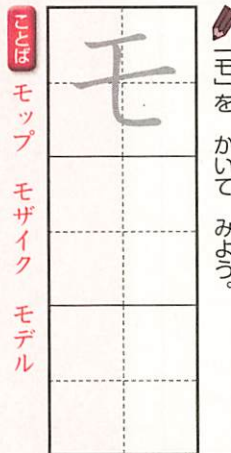 「モ」を かいて みよう。
モ
ことば モップ モザイク モデル